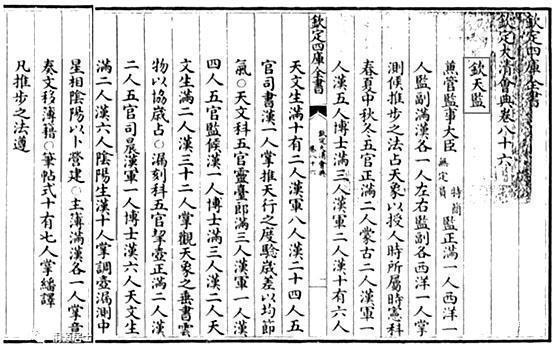 欽定四庫全書
欽定大清會典卷八十六
欽天監
兼管監事大臣特簡無定員監正滿一人西洋一
人監副滿漢各一人左右監副各西洋一人掌
測候推步之法占天象以授人時所屬時憲科
春夏中秋冬五官正滿二人蒙古二人漢軍一
人漢五人博士滿三人漢軍二人漢十有六人
欽定四庫全書
欽定大清會典
卷八十六
天文生滿十有二人漢軍八人漢二十四人五
官司書漢一人掌推天行之度驗歲差以均節
氣○天文科五官靈臺郎滿三人漢軍一人漢
四人五官監候漢一人博士滿三人漢二人天
文生滿二人漢三十二人掌觀天象之垂書雲
物以協歲占○漏刻科五官挈壺正滿二人漢
二人五官司晨漢軍一人博士漢六人天文生
滿二人漢六人陰陽生漢十人掌調壺漏測中
星相陰陽以卜營建○主簿滿漢各一人掌章
奏文移簿籍○筆帖式十有七人掌繙譯
凡推步之法遵